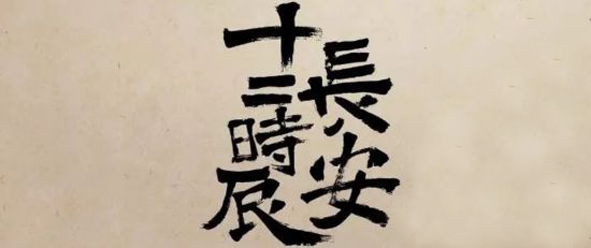 長安
十二時辰